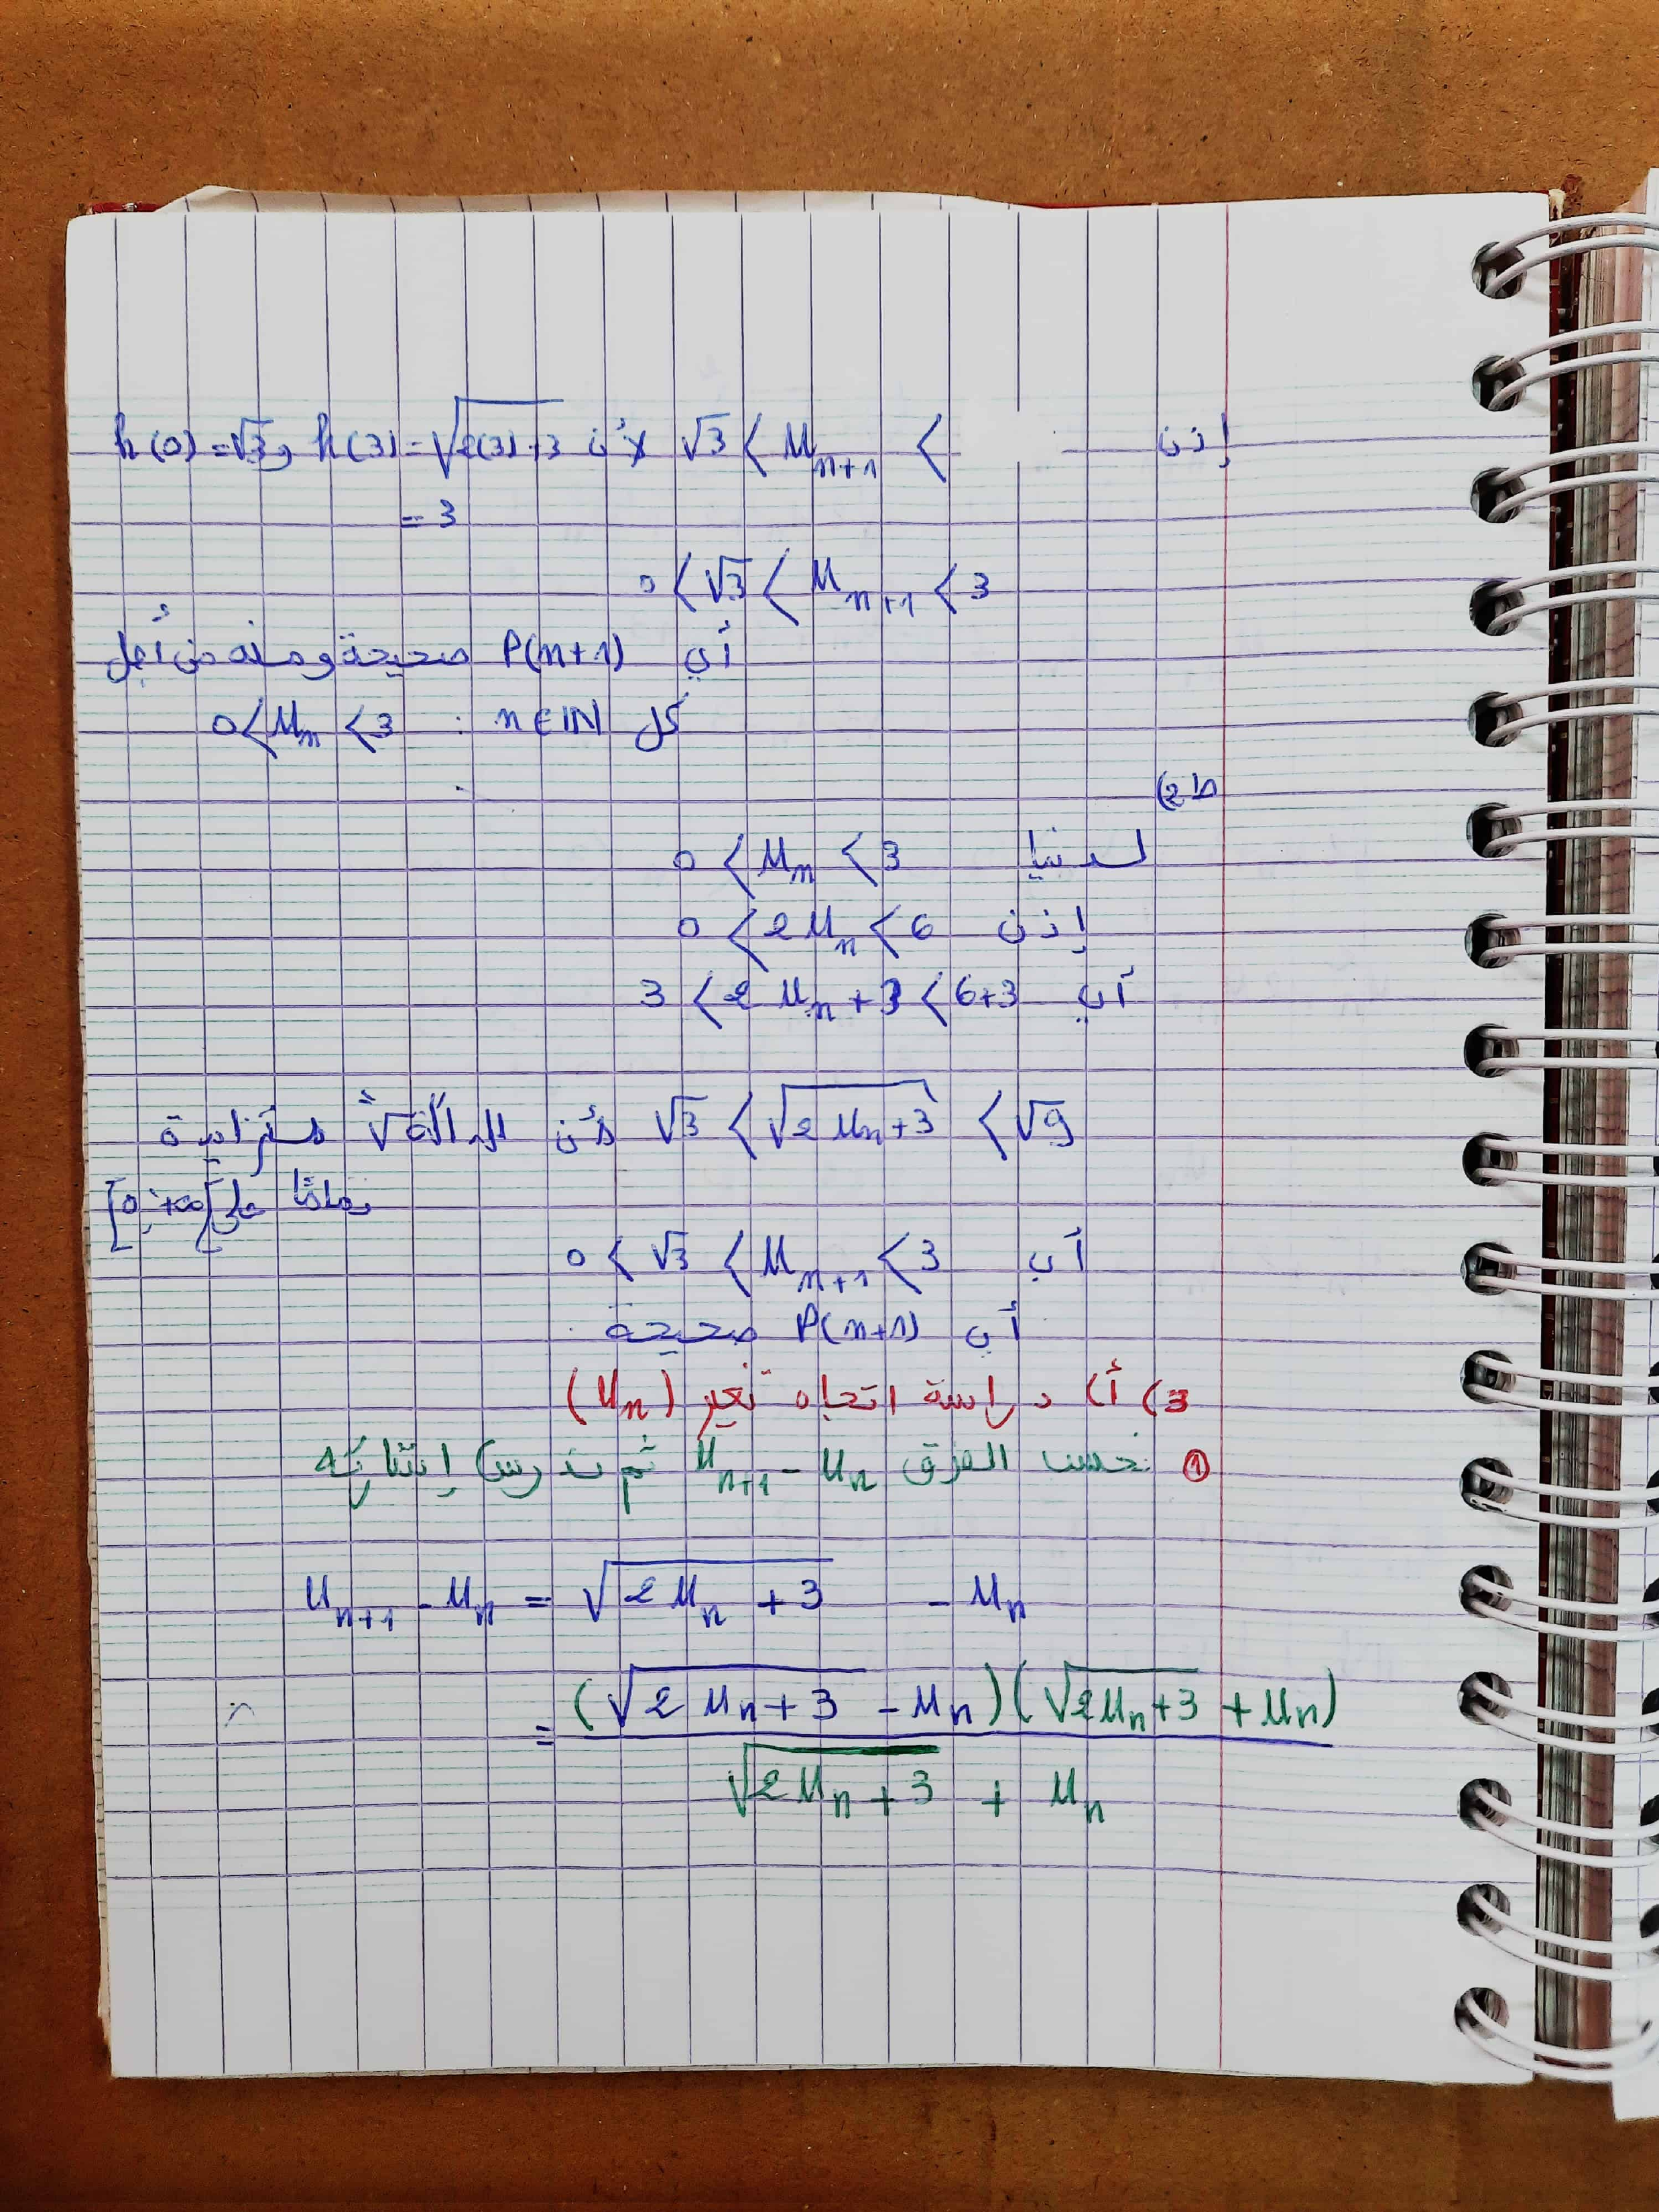 إذن √3 < u_{n+1} < لأن h(3) = √(2(3)+3) و h(0) = √3
= 3
0 < √3 < u_{n+1} < 3
أي P(n+1) صحيحة ومنه من أجل
كل n ∈ IN : 0 < u_n < 3
ط2)
لدينا 0 < u_n < 3
إذن 0 < 2u_n < 6
أي 3 < 2u_n + 3 < 6+3
√3 < √(2u_n+3) < √9 لأن الدالة "√" متزايدة
تماما على [0;+∞[
أي 0 < √3 < u_{n+1} < 3
أي P(n+1) صحيحة.
3) أ) دراسة اتجاه تغير (u_n)
① نحسب الفرق u_{n+1} - u_n ثم ندرس إشارته
u_{n+1} - u_n = √(2u_n + 3) - u_n
= (√(2u_n+3) - u_n)(√(2u_n+3) + u_n)
√(2u_n+3) + u_n